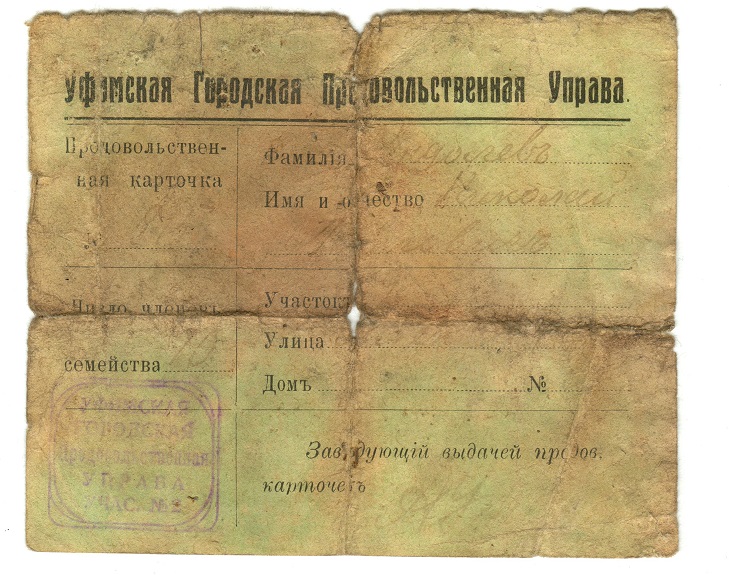 Уфимская Городская Продовольственная Управа.
Продовольствен-
ная карточка
№
Число членовъ
семейства 10
Фамилія
Имя и отчество Николай
Участокъ
Улица
Домъ №
Завѣдующій выдачей продов.
карточекъ
УФИМСКАЯ
ГОРОДСКАЯ
Продовольственная
УПРАВА
УЧАС. № 2